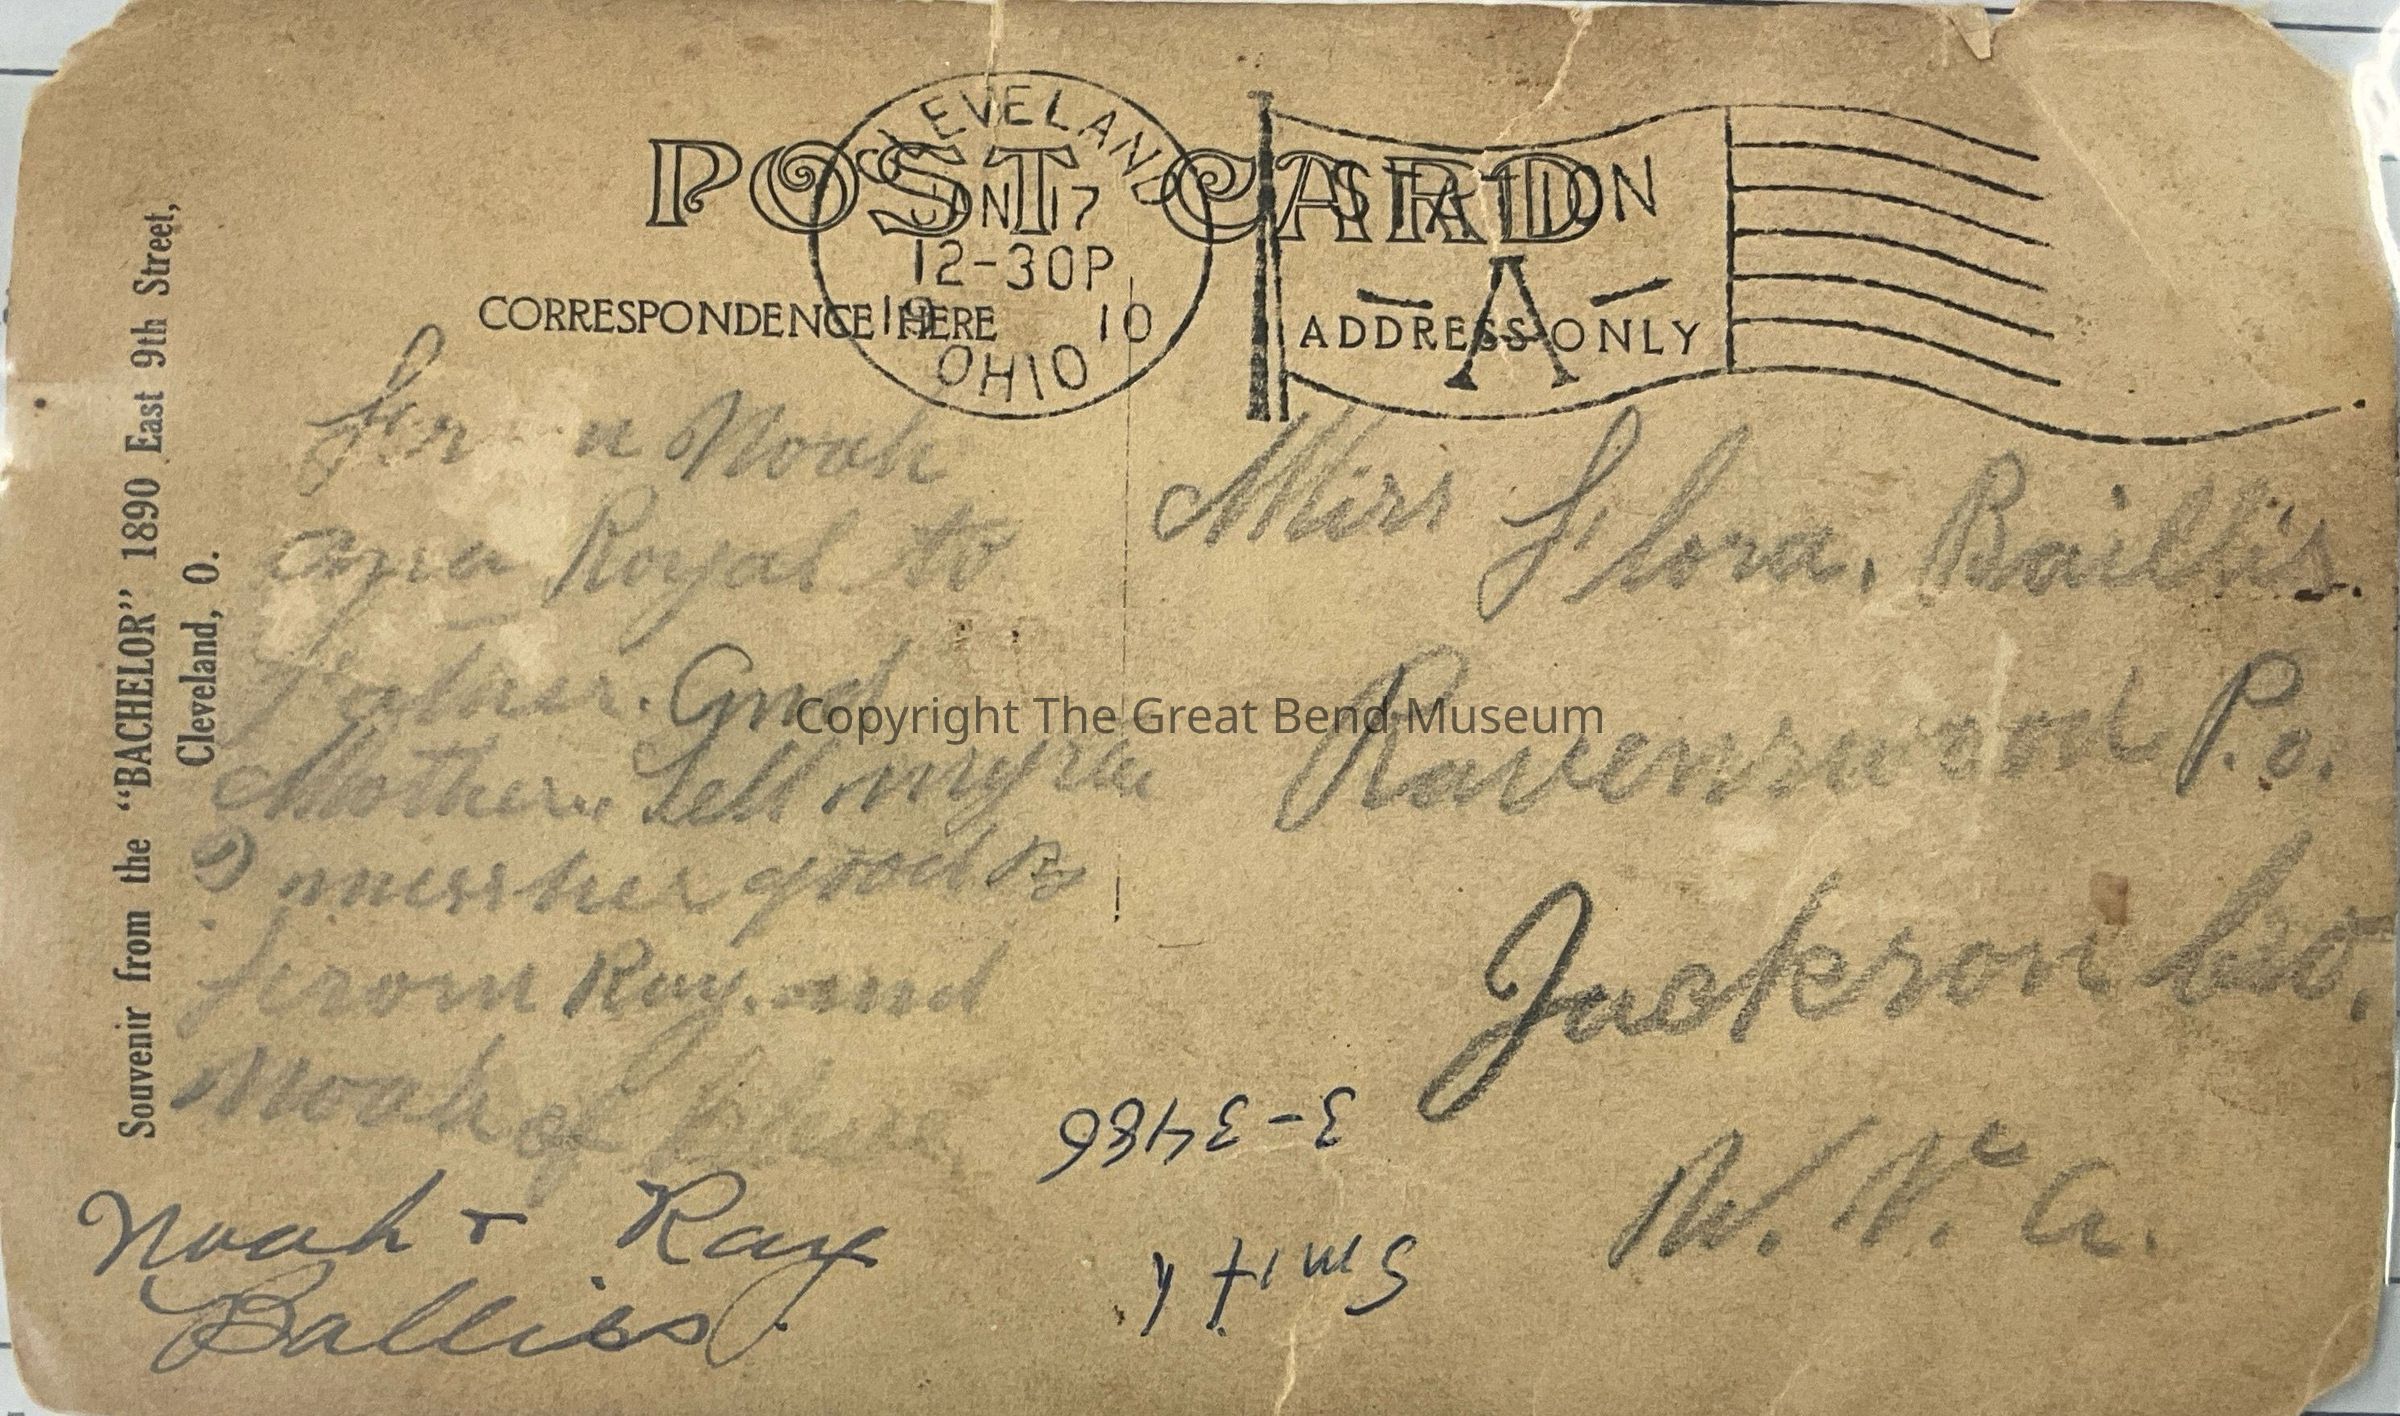 POST CARD
CLEVELAND
JUN 17
12-30P
19 10
OHIO
STATION
A
CORRESPONDENCE HERE
ADDRESS ONLY
Souvenir from the "BACHELOR" 1890 East 9th Street,
Cleveland, O.
Noah
Royal to
Father. And
Mother. Tell myrtle
I miss her good B
from Ray. and
Noah of
Noah + Ray
Balliss.
Miss Flora. Baillis.
Ravenswood P.o.
Jackson Co.
W. Va.
3-3486
Smith
Copyright The Great Bend Museum